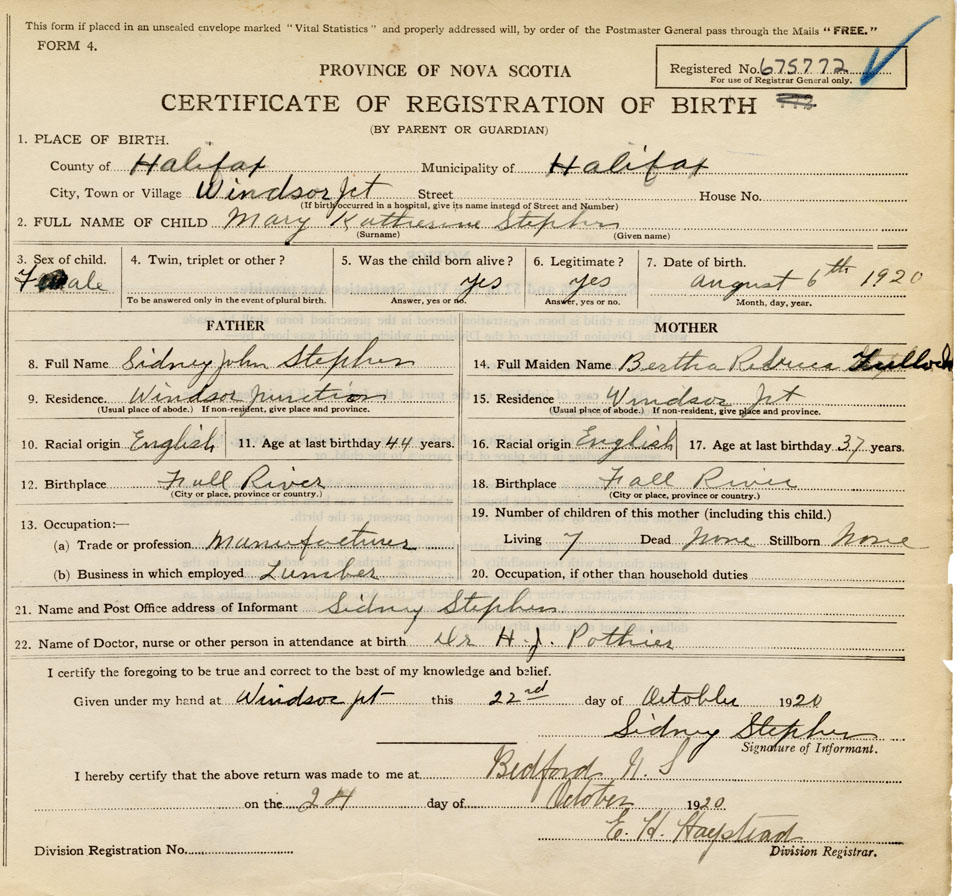 This form if placed in an unsealed envelope marked "Vital Statistics" and properly addressed will, by order of the Postmaster General pass through the Mails "FREE."
FORM 4.
Registered No. 675772
For use of Registrar General only.
PROVINCE OF NOVA SCOTIA
CERTIFICATE OF REGISTRATION OF BIRTH
(BY PARENT OR GUARDIAN)
1. PLACE OF BIRTH.
County of Halifax Municipality of Halifax
City, Town or Village Windsor Jct Street House No.
(If birth occurred in a hospital, give its name instead of Street and Number)
2. FULL NAME OF CHILD Mary Katherine Stephen
(Surname) (Given name)
3. Sex of child. 4. Twin, triplet or other? 5. Was the child born alive? 6. Legitimate? 7. Date of birth.
Female yes yes august 6th 1920
To be answered only in the event of plural birth. Answer, yes or no. Answer, yes or no. Month, day, year.
FATHER MOTHER
8. Full Name Sidney John Stephen 14. Full Maiden Name Bertha
9. Residence. Windsor Junction 15. Residence Windsor Jct
(Usual place of abode.) If non-resident, give place and province. (Usual place of abode.) If non-resident, give place and province.
10. Racial origin English 11. Age at last birthday 44 years. 16. Racial origin English 17. Age at last birthday 37 years.
12. Birthplace Fall River 18. Birthplace Fall River
(City or place, province or country.) (City or place, province or country.)
13. Occupation:— 19. Number of children of this mother (including this child.)
(a) Trade or profession Manufacturer Living 7 Dead None Stillborn None
(b) Business in which employed Lumber 20. Occupation, if other than household duties
21. Name and Post Office address of Informant Sidney Stephen
22. Name of Doctor, nurse or other person in attendance at birth Dr H. J. Pothier
I certify the foregoing to be true and correct to the best of my knowledge and belief.
Given under my hand at Windsor jct this 22nd day of October 1920
Sidney Stephen
Signature of Informant.
I hereby certify that the above return was made to me at Bedford N. S
on the 24 day of October 1920
E. H.
Division Registration No. Division Registrar.